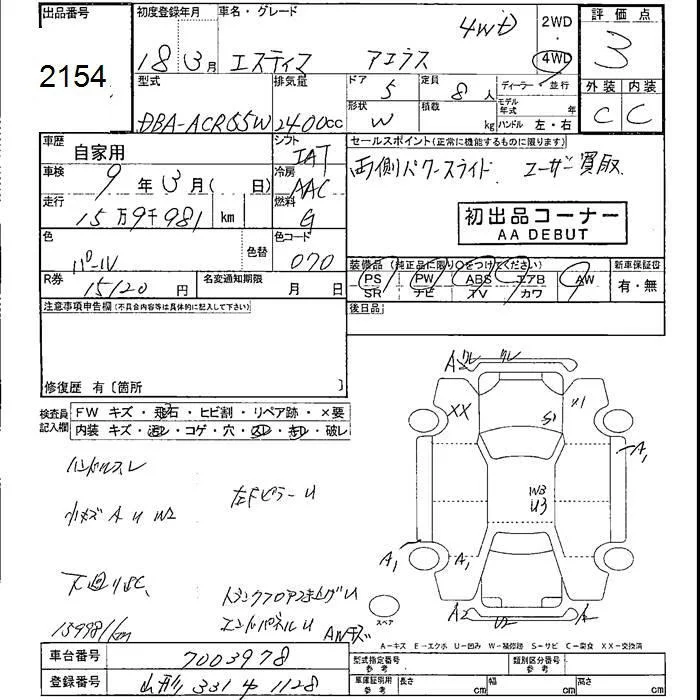 出品番号
2154
初度登録年月
18年3月
車名・グレード
エスティマ アエラス 4WD
2WD
4WD
評価点
3
外装 内装
C C
型式
DBA-ACR55W
排気量
2400cc
ドア 5
定員 8人
ディーラー・並行
形状 W
積載 kg
モデル年式 年
ハンドル 左・右
車歴
自家用
シフト
IAT
車検
9年3月( 日)
冷房
AAC
走行
15万9千981 km
燃料
G
色
パール
色替
色コード
070
R券
15120円
名変通知期限
月 日
セールスポイント(正常に機能するものに限ります)
両側パワースライド ユーザー買取
初出品コーナー
AA DEBUT
装備品(純正品に限り○をつけてください)
PS PW ABS エアB AW
SR ナビ TV カワ
新車保証書
有・無
後日品
注意事項申告欄(不具合内容等は具体的に記入して下さい)
修復歴 有〔箇所 〕
検査員記入欄
FW キズ・飛石・ヒビ割・リペア跡・×要
内装 キズ・汚レ・コゲ・穴・スレ・キレ・破レ
ハンドルスレ
小キズ A U W2
左Fピラー U
下廻りSC
トランクフロアつき上げ U
エンドパネル U
159981km
AWキズ
A
XX
X1
S1
W3
U3
A1
A1
A1
A2
U2
スペア
A-キズ E-エクボ U-凹み W-補修跡 S-サビ C-腐食 XX-交換済
車台番号
7003978
登録番号
山形 331 す 1128
型式指定番号 参考
類別区分番号 参考
車庫証明用 参考
長さ cm
幅 cm
高さ cm